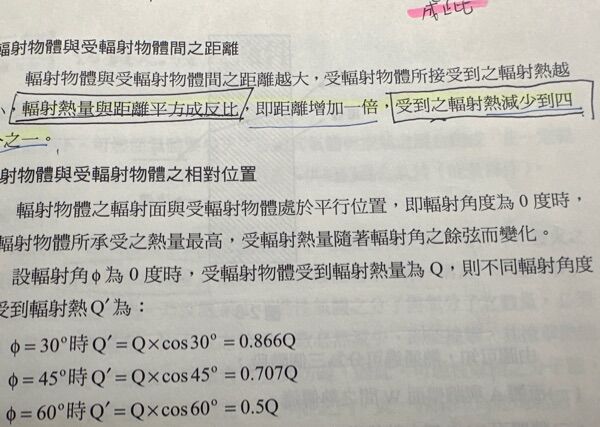 成正比
輻射物體與受輻射物體間之距離
輻射物體與受輻射物體間之距離越大，受輻射物體所接受到之輻射熱越
、輻射熱量與距離平方成反比，即距離增加一倍，受到之輻射熱減少到四
分之一。
射物體與受輻射物體之相對位置
輻射物體之輻射面與受輻射物體處於平行位置，即輻射角度為0度時，
輻射物體所承受之熱量最高，受輻射熱量隨著輻射角之餘弦而變化。
設輻射角ϕ為0度時，受輻射物體受到輻射熱量為Q，則不同輻射角度
受到輻射熱Q′為：
ϕ＝30°時Q′＝Q×cos30°＝0.866Q
ϕ＝45°時Q′＝Q×cos45°＝0.707Q
ϕ＝60°時Q′＝Q×cos60°＝0.5Q